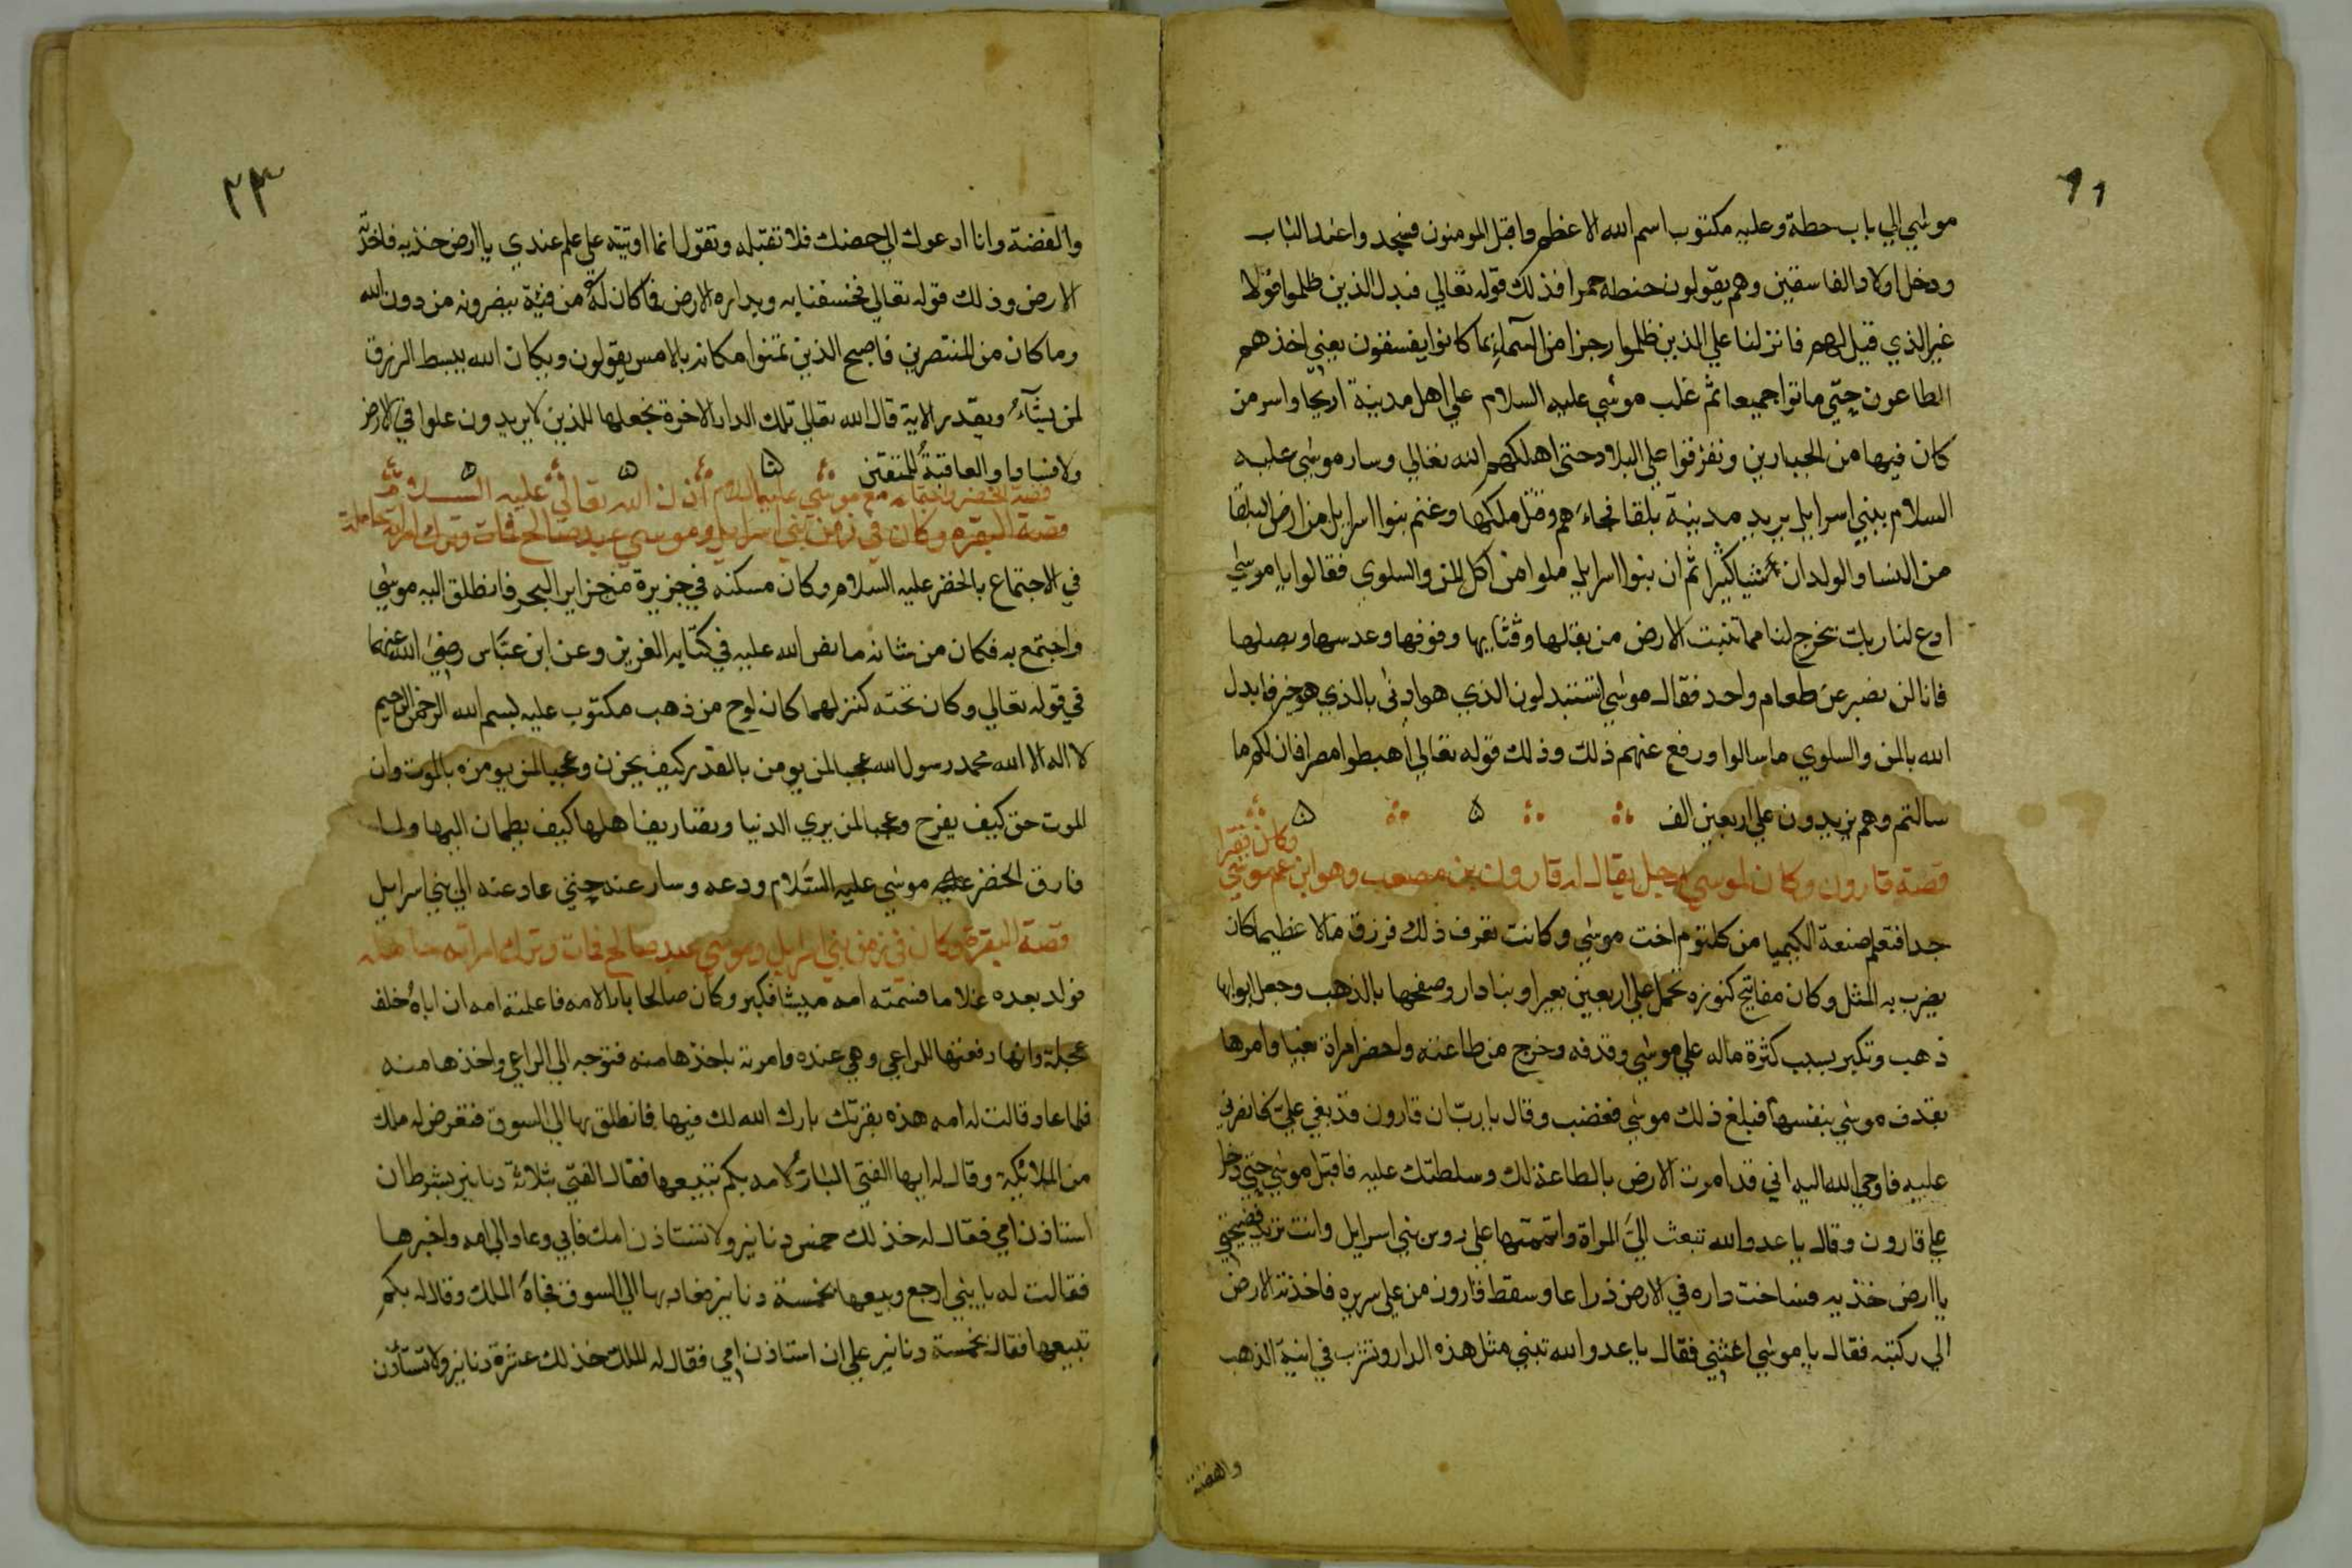 موسي الي باب حطة وعليه مكتوب اسم الله الاعظم واقبل المومنون فسجدوا عند الباب
ودخل اولاد الفاسقين وهم يقولون حنطه حمرا فذلك قوله تعالي فبدل الذين ظلموا قولا
غير الذي قيل لهم فانزلنا علي الذين ظلموا رجزا من السماء بما كانوا يفسقون يعني اخذهم
الطاعون حتي ماتوا جميعا ثم غلب موسي عليه السلام علي اهل مدينة اريحا واسر من
كان فيها من الجبارين وتفرقوا علي البلاد حتي اهلكهم الله تعالي وسار موسي عليه
السلام ببني اسرايل يريد مدينة بلقا فجاءهم وقتل ملكها وغنم بنوا اسرايل من ارض البلقا
من النسا والولدان شيا كثيرا ثم ان بنوا اسرايل ملوا من اكل المن والسلوي فقالوا يا موسي
ادع لنا ربك يخرج لنا مما تنبت الارض من بقلها وقثايها وفومها وعدسها وبصلها
فانا لن نصبر عن طعام واحد فقال موسي اتستبدلون الذي هو ادني بالذي هو خير فابدل
الله بالمن والسلوي ما سالوا ورفع عنهم ذلك وذلك قوله تعالي اهبطوا مصرا فان لكم ما
سالتم وهم يزيدون علي اربعين الف
وكان فقيرا
قصة قارون وكان لموسي رجل يقال له قارون بن مصعب وهو ابن عم موسي
جدا فتعلم صنعة الكيميا من كلثوم اخت موسي وكانت تعرف ذلك فرزق مالا عظيما كان
يضرب به المثل وكان مفاتيح كنوزه تحمل علي اربعين بعيرا وبنا دارا وصفحها بالذهب وجعل ابوابها
ذهب وتكبر بسبب كثرة ماله علي موسي وقذفه وخرج من طاعته واحضر امراة بغيا وامرها
بقذف موسي بنفسها فبلغ ذلك موسي فغضب وقال يا رب ان قارون قد بغي علي فانصرني
عليه فاوحي الله اليه اني قد امرت الارض بالطاعة لك وسلطتك عليه فاقبل موسي حتي دخل
علي قارون وقال يا عدو الله تبعث الي المراة واتهمتها علي روس بني اسرايل وانت تريد فضيحتي
يا ارض خذيه فساخت داره في الارض ذراعا وسقط قارون من علي سريره فاخذته الارض
الي ركبته فقال يا موسي اغثني فقال يا عدو الله تبني مثل هذه الدار وتشرب في انية الذهب
والفضة
٢٣
والفضة وانا ادعوك الي حضك فلا تقبله وتقول انما اوتيته علي علم عندي يا ارض خذيه فاخذته
الارض وذلك قوله تعالي فخسفنا به وبداره الارض فما كان له من فئة ينصرونه من دون الله
وما كان من المنتصرين فاصبح الذين تمنوا مكانه بالامس يقولون ويكان الله يبسط الرزق
لمن يشآء ويقدر الاية قال الله تعالي تلك الدار الاخرة نجعلها للذين لا يريدون علوا في الارض
ولا فسادا والعاقبة للمتقين
قصة الخضر واجتماعه مع موسي عليه السلام اذن الله تعالي عليه السلام
قصة البقره وكان في زمن بني اسرايل وموسي عبد صالح فمات وترك امراته حاملة
في الاجتماع بالخضر عليه السلام وكان مسكنه في جزيرة من جزاير البحر فانطلق اليه موسي
واجتمع به فكان من شانه ما نص الله عليه في كتابه العزيز وعن ابن عباس رضي الله عنهما
في قوله تعالي وكان تحته كنز لهما كان لوح من ذهب مكتوب عليه بسم الله الرحمن الرحيم
لا اله الا الله محمد رسول الله عجبا لمن يومن بالقدر كيف يحزن وعجبا لمن يومن بالموت وان
الموت حق كيف يفرح وعجبا لمن يري الدنيا وتصاريفا هلها كيف يطمان اليها ولما
فارق الخضر عليه موسي عليه السلام ودعه وسار عنه حتي عاد عنه الي بني اسرايل
قصة البقرة وكان في زمن بني اسرايل وموسي عبد صالح فمات وترك امراته حامله
فولد بعده غلاما فسمته امه ميشا فكبر وكان صالحا بارا لامه فاعلمته امه ان اباه خلف
عجلة وانها دفعتها للراعي وهي عنده وامرته باخذها منه فتوجه الي الراعي واخذها منه
فلما عاد قالت له امه هذه بقرتك بارك الله لك فيها فانطلق بها الي السوق فتعرض له ملك
من الملائكة وقال له ايها الفتي البار لامه بكم تبيعها فقال الفتي بثلاثة دنانير بشرط ان
استاذن امي فقال له خذ لك خمس دنانير ولا تستاذن امك فابي وعاد الي امه واخبرها
فقالت له يا بني ارجع وبيعها بخمسة دنانير فعاد بها الي السوق فجاه الملك وقال له بكم
تبيعها فقال بخمسة دنانير علي ان استاذن امي فقال له الملك خذ لك عشرة دنانير ولا تستأذن